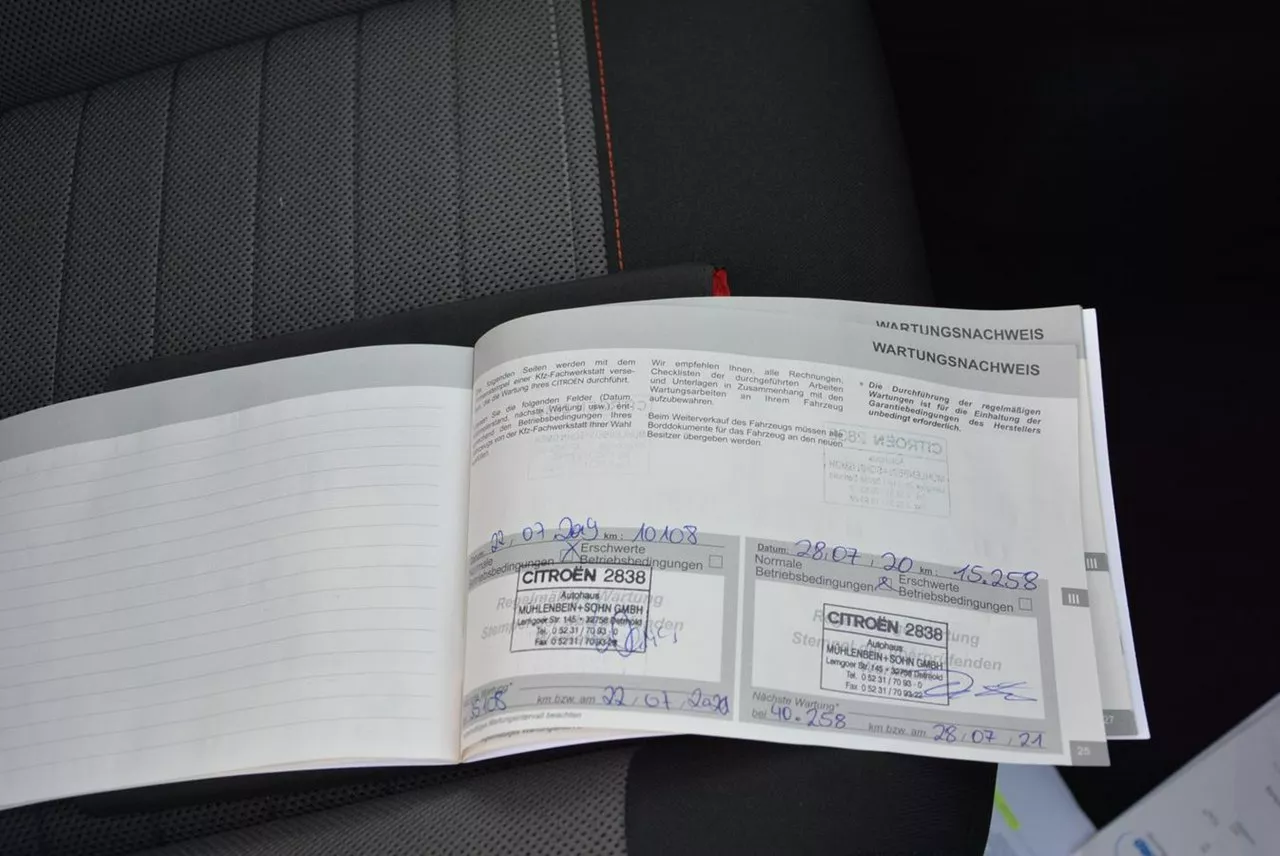 WARTUNGSNACHWEIS
WARTUNGSNACHWEIS
folgenden Seiten werden mit dem
einer Kfz-Fachwerkstatt
die Wartung Ihres CITROËN durchführt.
Sie die folgenden Felder (Datum,
nächste Wartung usw.)
den Betriebsbedingungen Ihres
von der Kfz-Fachwerkstatt Ihrer Wahl
Wir empfehlen Ihnen, alle Rechnungen,
Checklisten der durchgeführten Arbeiten
und Unterlagen in Zusammenhang mit den
Wartungsarbeiten an Ihrem Fahrzeug
aufzubewahren.
Beim Weiterverkauf des Fahrzeugs müssen alle
Borddokumente für das Fahrzeug an den neuen
Besitzer übergeben werden.
* Die Durchführung der regelmäßigen
Wartungen ist für die Einhaltung der
Garantiebedingungen des Herstellers
unbedingt erforderlich.
Datum: 22, 07 2019 km: 10108
Normale Betriebsbedingungen
Erschwerte Betriebsbedingungen
CITROËN 2838
Autohaus
MÜHLENBEIN+SOHN GMBH
Lemgoer Str. 145 • 32758 Detmold
Tel. 0 52 31 / 70 93 - 0
Fax 0 52 31 / 70 93-22
Wartung*
km bzw. am 22, 07, 2020
Datum: 28.07, 20 km: 15.258
Normale Betriebsbedingungen
Erschwerte Betriebsbedingungen
CITROËN 2838
Autohaus
MÜHLENBEIN+SOHN GMBH
Lemgoer Str. 145 • 32758 Detmold
Tel. 0 52 31 / 70 93 - 0
Fax 0 52 31 / 70 93-22
Nächste Wartung*
bei 40.258 km bzw. am 28, 07, 21
III
III
27
25